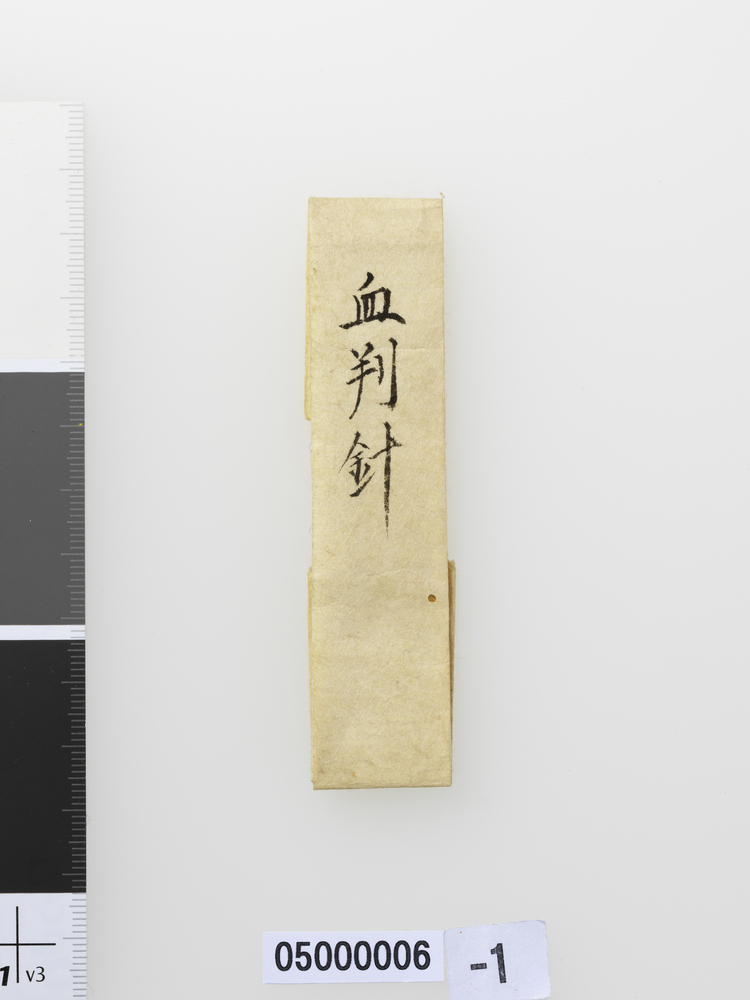 血判針
05000006
-1
1 v3